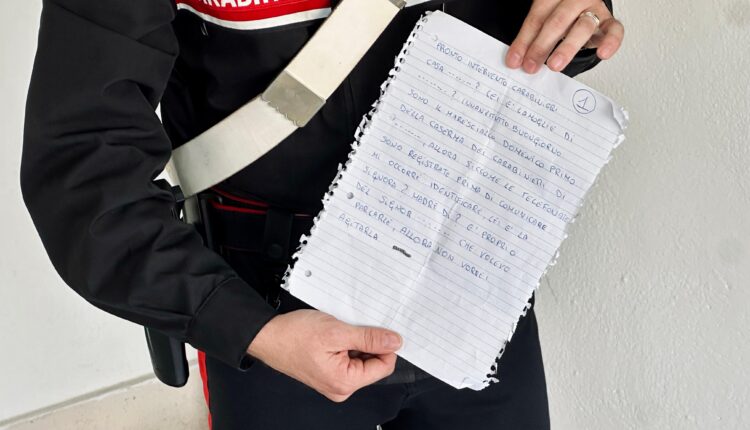 CARABI
1
PRONTO INTERVENTO CARABINIERI
CASA ........ ? LEI E LA MOGLIE DI
........ ? INNANZITUTTO BUONGIORNO
SONO IL MARESCIALLO DOMENICO PRIMO
DELLA CASERMA DEI CARABINIERI, DI
? ........, ALLORA SICCOME LE TELEFONATE
SONO REGISTRATE PRIMA DI COMUNICARE
MI OCCORRE IDENTIFICARE, LEI E LA
SIGNORA ? MADRE DI ? E PROPRIO
DEL SIGNOR ........ CHE VOLEVO
PARLARLE, ALLORA NON VORREI
AGITARLA